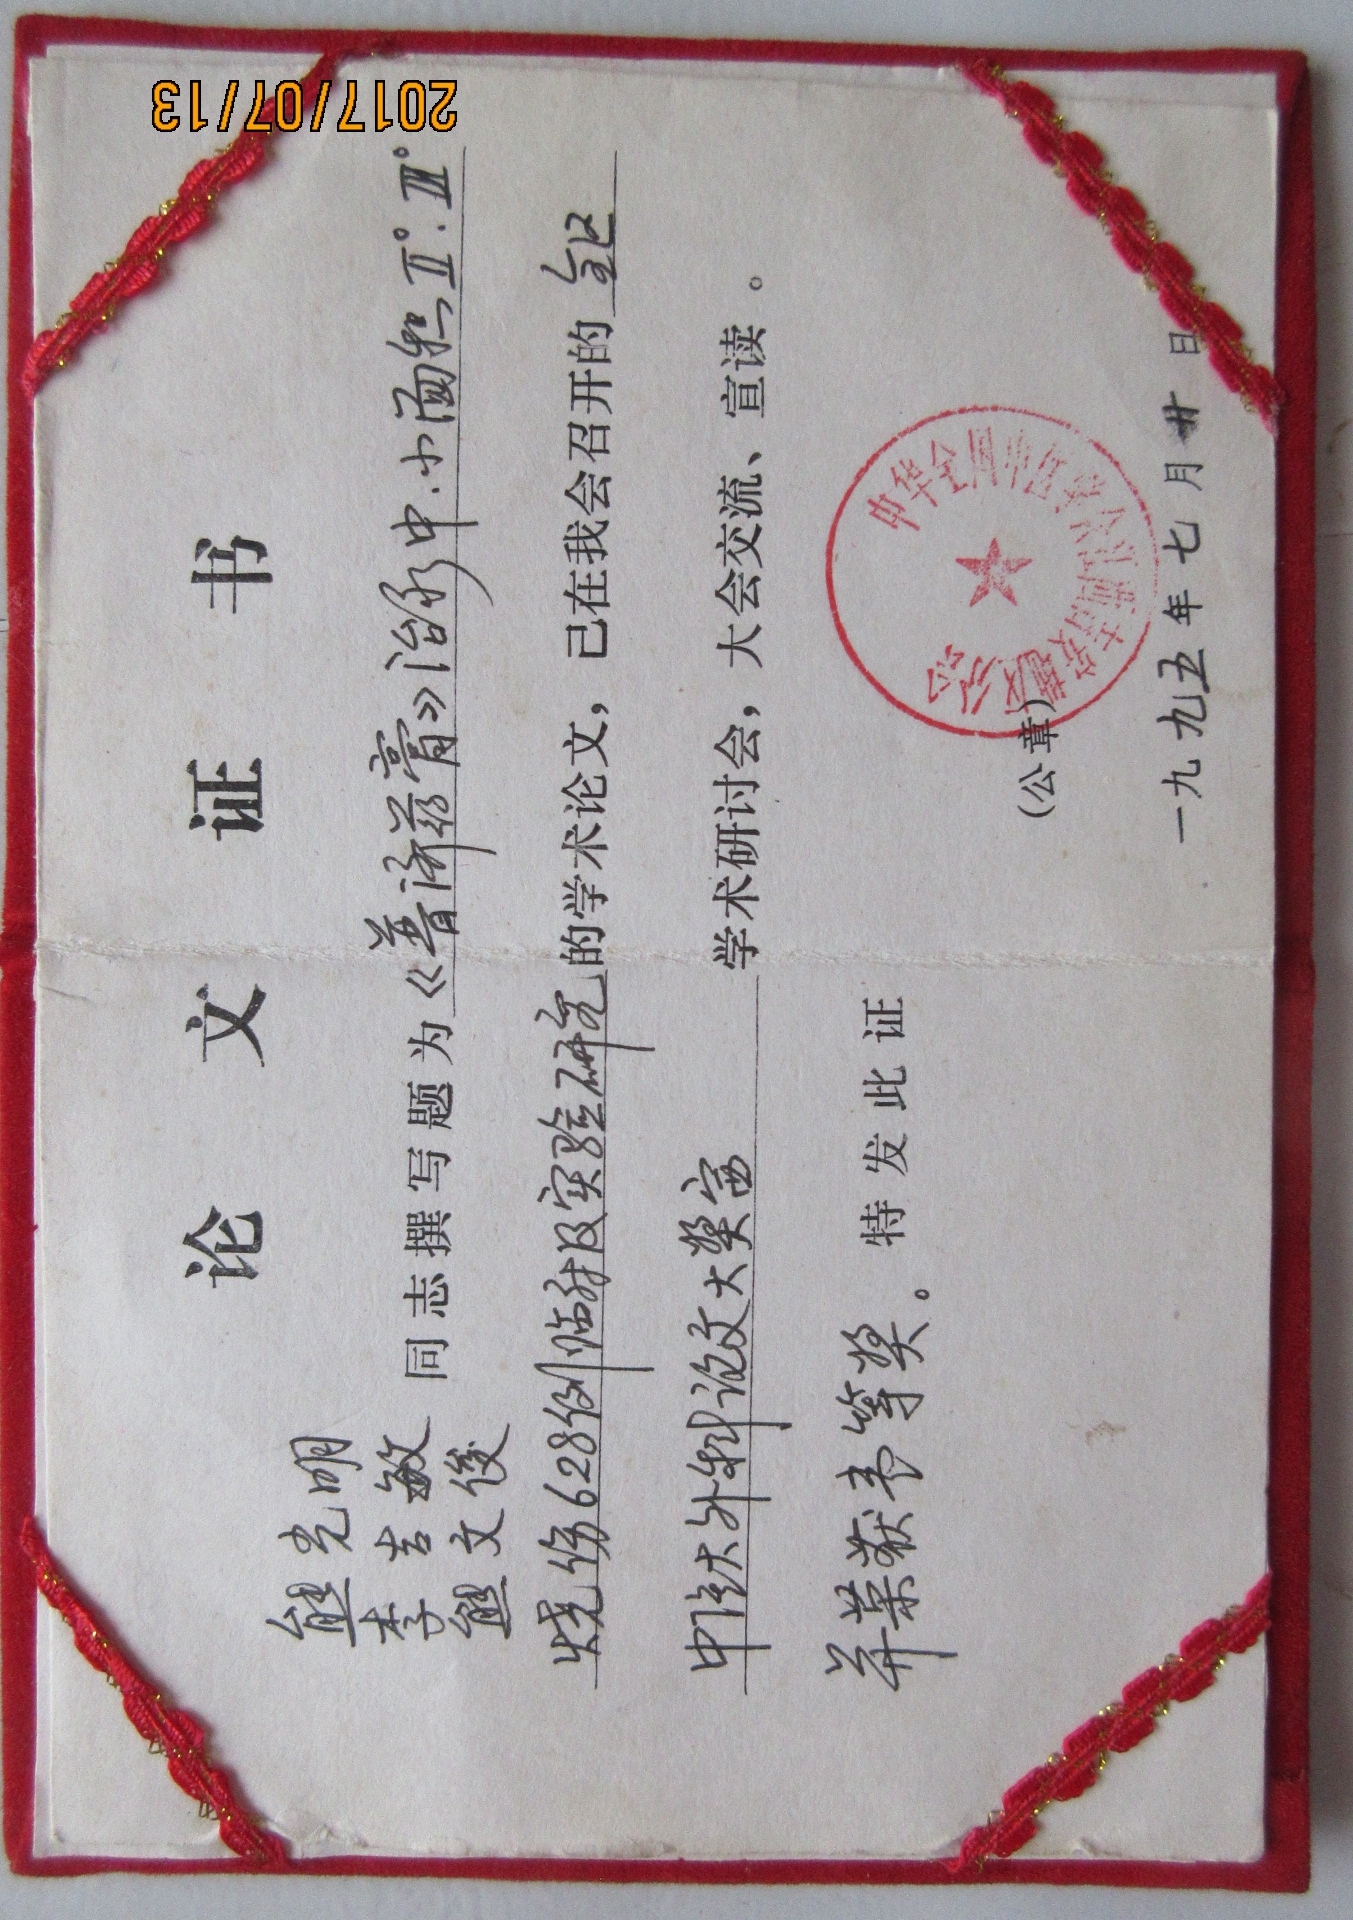 论文证书
熊光明
李吉敏
熊文俊
同志撰写题为《普济蒋膏》治疗中.小面积II°.III°
烧伤628例临射及实验研究的学术论文，已在我会召开的全国
中医大外科论文大奖赛 学术研讨会，大会交流、宣读。
并荣获 等奖。 特发此证
中华全国中医学会 分会
(公章)
一九九五年七月廿日
2017/07/13